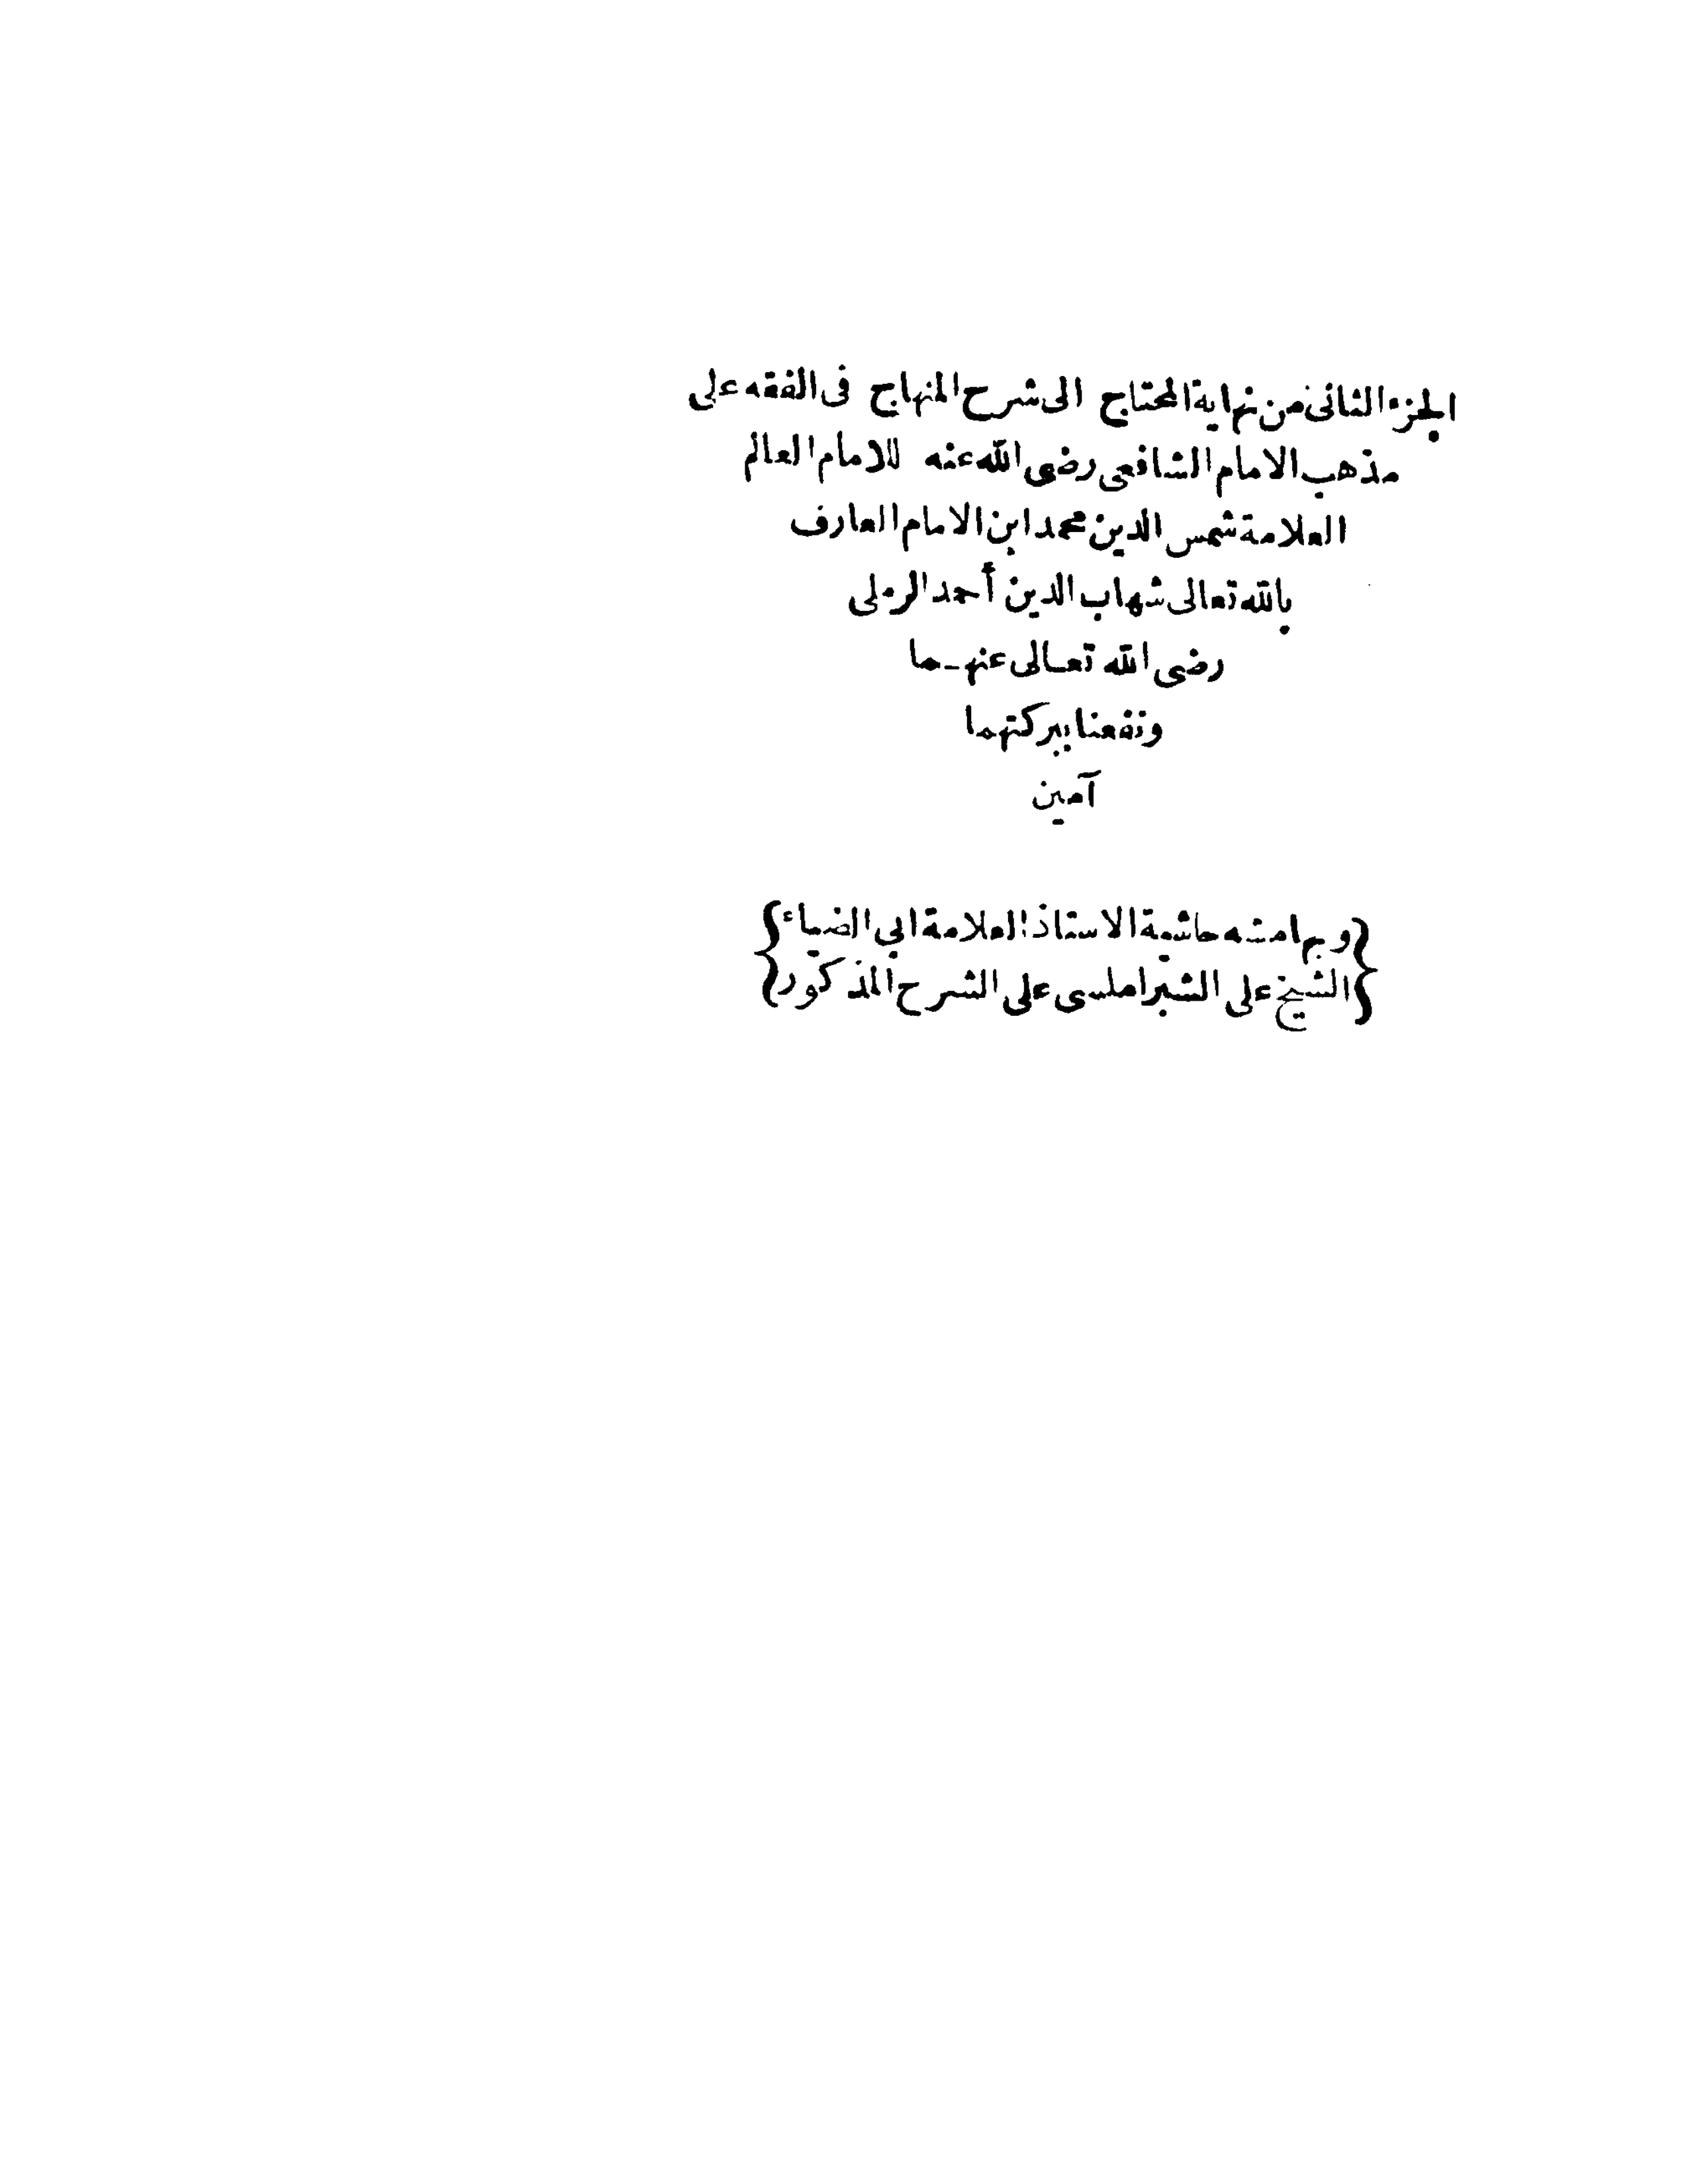 الجزء الثانى من نهاية المحتاج الى شرح المنهاج فى الفقه على
مذهب الامام الشافعى رضى الله عنه للامام العالم
العلامة شمس الدين محمد ابن الامام العارف
بالله تعالى شهاب الدين أحمد الرملى
رضى الله تعالى عنهما
ونفعنا ببركتهما
آمين
{وبهامشه حاشية الاستاذ العلامة ابى الضياء}
{الشيخ على الشبراملسى على الشرح المذكور}